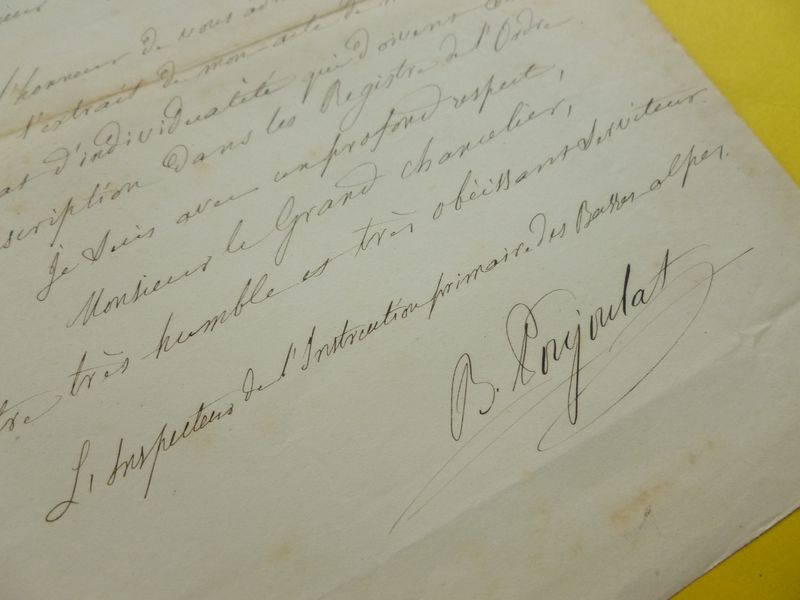 l'honneur de vous
l'extrait de mon acte de
d'individualité qui doivent
scription dans les Registre de l'Ordre
Je suis avec un profond respect,
Monsieur le Grand chancelier,
tre très humble et très obéissant serviteur.
L'Inspecteur de l'Instruction primaire des Basses alpes.
B. Poujoulat